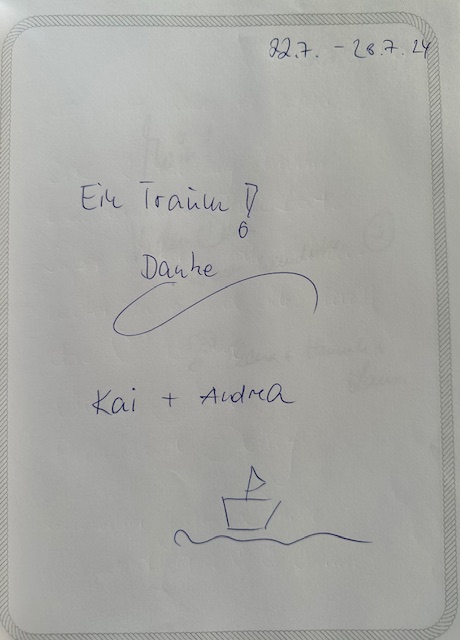 22.7. - 28.7.24
Ein Traum!
Danke
Kai + Andrea